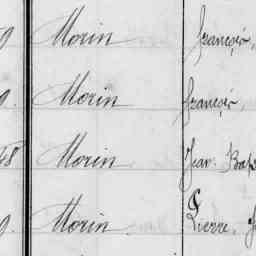 9 Morin François,
9. Morin François,
48 Morin Jean Bap
9. Morin. Pierre, J